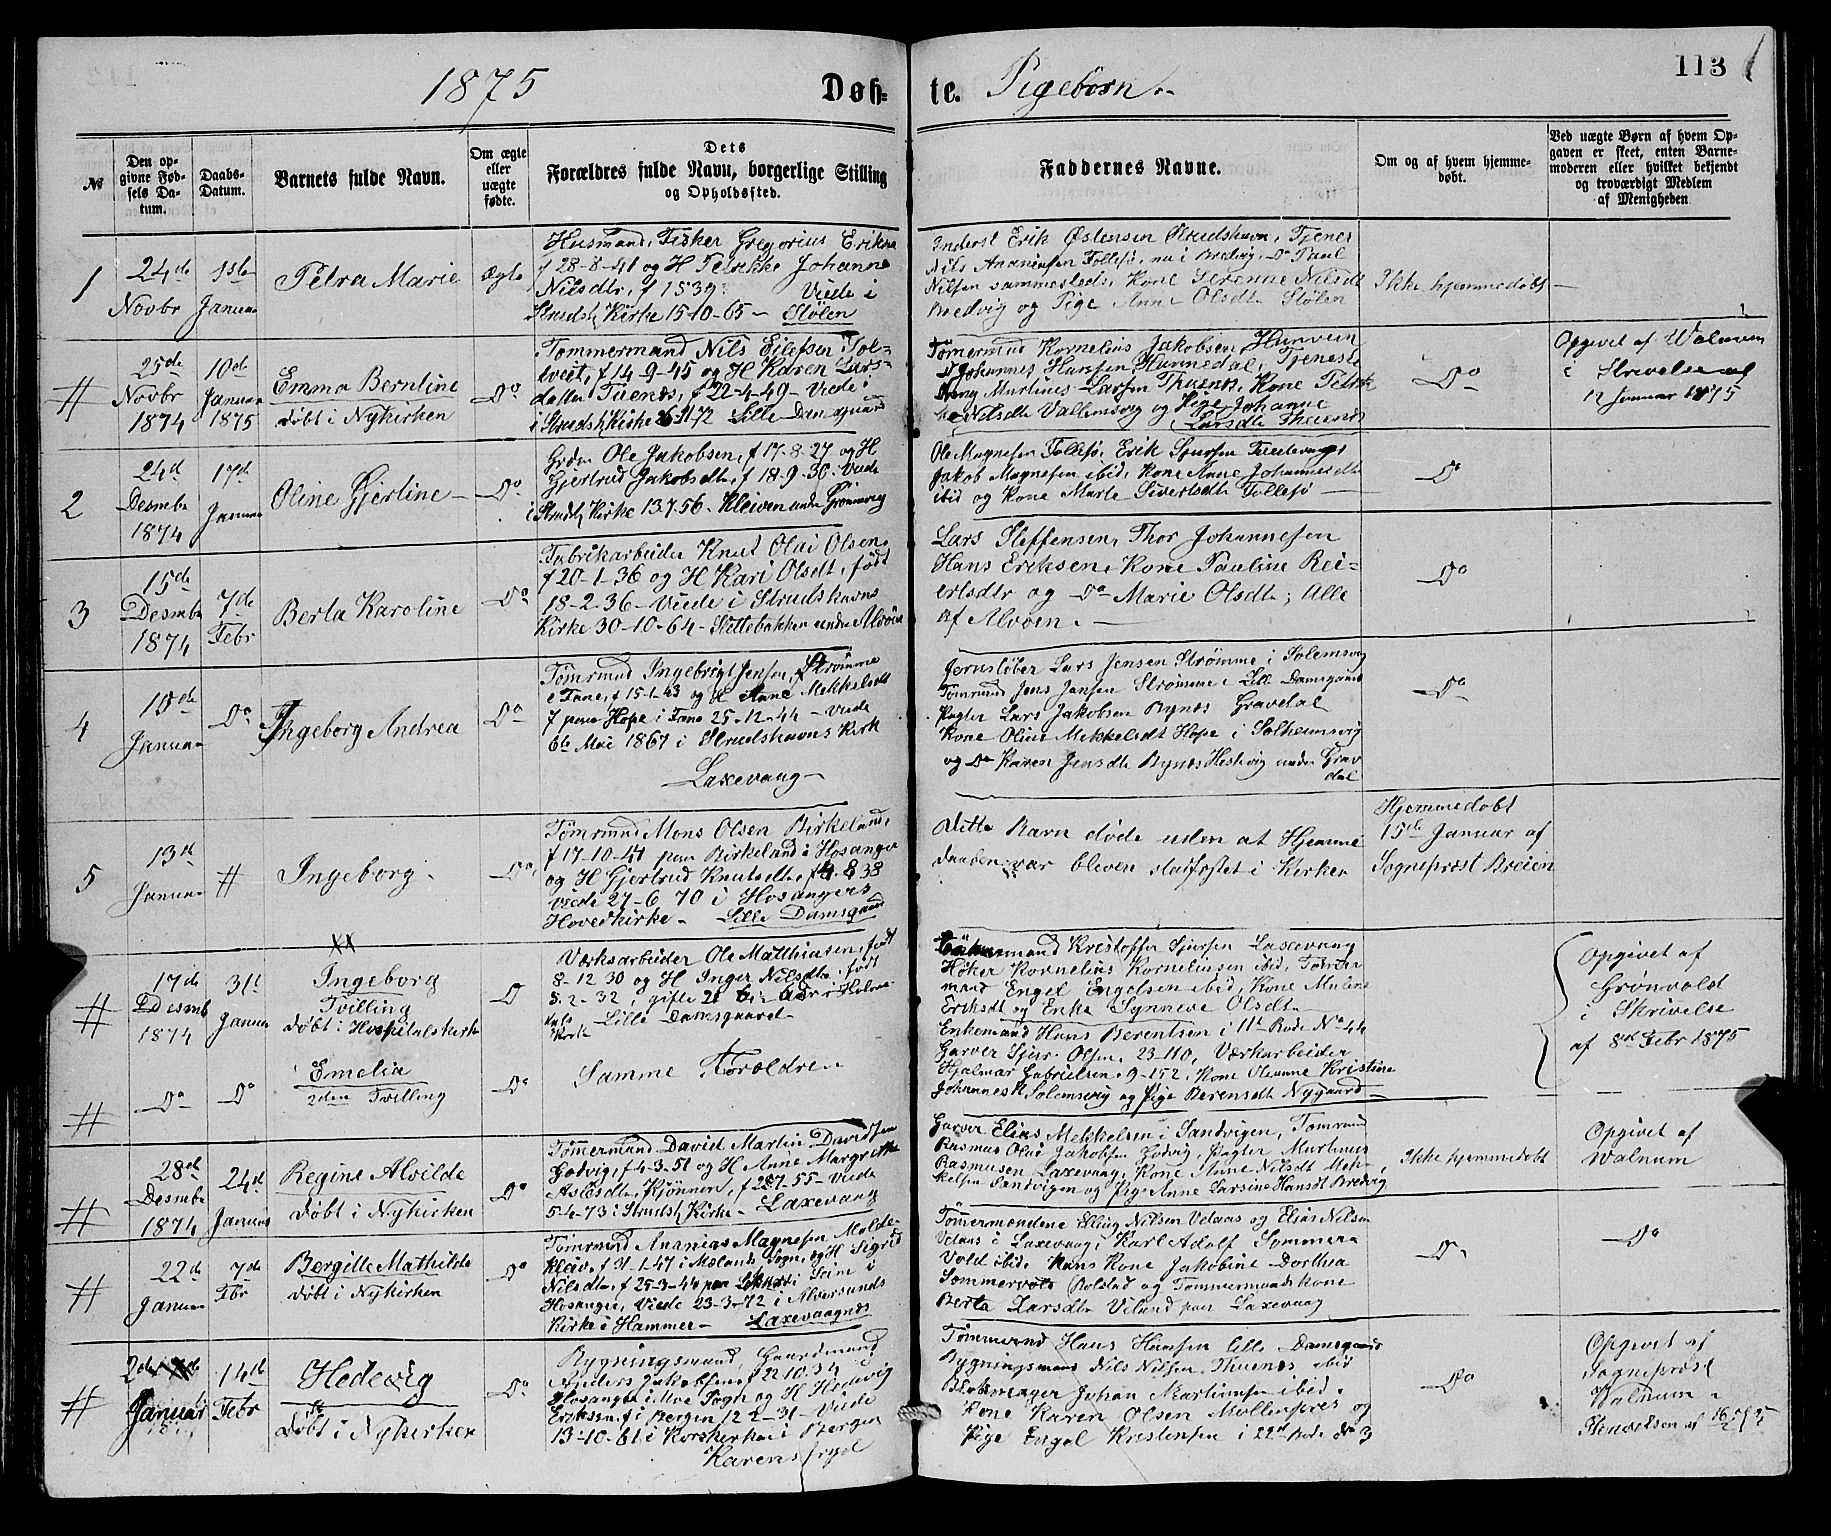 113
1875 Døb- te. Pigebørn.
№
Den op-
givne Fød-
sels Da-
tum.
Daabs-
Datum.
Barnets fulde Navn.
Om ægte
eller
uægte
fødte.
Dets
Forældres fulde Navn, borgerlige Stilling
og Opholdssted.
Faddernes Navne.
Om og af hvem hjemme-
døbt.
Ved uægte Børn af hvem Op-
gaven er skeet, enten Barne-
moderen eller hvilket bekjendt
og troværdigt Medlem
af Menigheden
1
24de
Novbr
1ste
Januar
Petra Marie
Ægte
Husmand, Fisker Gregorius Eriksen
f 28-8-41 og H Petrikke Johanne
Nilsdtr, f 1839. Viede i
Strudsh Kirke 15-10-65 - Stølen
Inderst Erik Østensen Strudshavn, Tjener
Nils Ananiesen Follesø, nu i Bredvig, Do Paul
Nilsen sammesteds, Kone Serenne Nilsdt
Bredvig og Pige Anne Olsdt Stølen
Ikke hjemmedøbt
#
25de
Novbr
1874
10de
Januar
1875
Emma Berntine
døbt i Nykirken
Do
Tømmermand Nils Eilefsen Tol-
tveit, f 14-9-45 og H Karen Lars-
datter Tuenes, f 22-4-49 - Viede i
i Strudsh Kirke 72 Lille Damsgaard
Tømermnd Kornelius Jakobsen
Johannes Hansen Tjeneste
dreng Martinus Larsen Thuenes, Kone Petrik-
ke Nilsdt Vallemsvig og Pige Johanne
Larsdtr Thuenes
Do
Opgivet af Walnum
i Skrivelse af
12 Januar 1875
2
24d
Desmbr
1874
17d
Januar
Oline Gjertine
Do
Grdm Ole Jakobsen, f 17-8-27 og H
Gjertrud Jakobsdt, f 18-9-30. Viede
i Strudsh Kirke 13-7-56 - Kleiven under Grønnevig
Ole Magnesen Follesø, Erik Sjursen
Jakob Magnesen ibid, Kone Anne Johannesdt
ibid og Kone Marte Sivertsdt Follesø
Do
3
15de
Desmbr
1874
7de
Febr
Berta Karoline
Do
Fabrikarbeider Knut Olai Olsen,
f 20-1-36 og H Kari Olsdt, født
18-2-36 - Viede i Strudshavns
Kirke 30-10-64 - Slettebakken under Alvøen
Lars Steffensen, Thor Johannesen
Hans Eriksen, Kone Pauline Rei-
ertsdtr og Do Marie Olsdt; Alle
af Alvøen.
Do
4
10de
Januar
Do
Ingeborg Andrea
Do
Tømrmnd Ingebrigt Jensen, Strømme
i Fane, f 15-1-43 og H Anne Mekkelsdt
f paa Hope i Fane 25-12-44 - Viede
6te Mai 1867 i Strudshavns Kirk
Laxevaag
Jernstøber Lars Jensen Strømme i Solemsvig
Tømrmnd Jens Jansen Strømme i Lille Damsgaard
Pagter Lars Jakobsen Bynes Gravdal
Kone Oline Mekkelsdt Hope i Solheimsvig
og Do Karen Jensdt Bynes Hestvig under Grav
dal
Do
5
13d
Januar
#
Ingeborg
Do
Tømrmnd Mons Olsen Birkeland,
f 17-10-41 paa Birkeland i Hosanger
og H Gjertrud Knutsdt, f 4-8-38
viede 27-6 70 i Hosangers
Hovedkirke - Lille Damsgaard
Dette Barn døde uden at Hjemme
daaben var bleven stadfæstet i Kirken
Hjemmedøbt
15de Januar af
Sogneprest Breien
#
17de
Desmb
1874
31t
Januar
XX
Ingeborg
Tvilling
døbt i Hospitalskirke
D
Værksarbeider Ole Matthiasen, født
8-12 30 og H Inger Nilsdt, født
5-2-32, gifte
Kirke
Lille Damsgaard
Kristoffer Sjursen Laxevaag
Høker Kornelius Kornelius­sen ibid, Tømmer
mand Engel Engelsen ibid, Kone Malene
Eriksdt og Enke Synneve Olsdt
Enkemand Hans Berentsen i 11t Rode No 44
Garver Sjur Olsen, 23-110, Værkarbeider
Hjalmar Gabrielsen, 9-152, Kone Oleanne Kristine
Johannes Solemsvig og Pige Berensdt Nygaard
Opgivet af
Grønvold
i Skrivelse
af 8de Febr 1875
#
Do
Do
Emelia
2den Tvilling
Do
Samme Forældre
#
28d
Desmbr
1874
24d
Januar
Regine Alvilde
døbt i Nykirken
Do
Tømmermand David Martin Davidsen
Godvig, f 4-3-51 og H Anne Margrethe
Aslesdt, Kjønnen, f 55 - Viede
5-4-73 i Strudsh Kirke - Laxevaag
Garver Elias Mekkelsen i Sandvigen, Tømrmnd
Rasmus Olai Jakobsen Godvig, Pagter Martinus
Rasmusen Laxevaag, Kone Anne Nilsdt Mek-
kelsen Sandvigen og Pige Anne Larsine Hansdt Bredvig
Ikke hjemmedøbt
Opgivet af
Walnum
#
22d
Januar
7de
Fbr
Bergitte Mathilde
døbt i Nykirken
Do
Tømrmnd Ananias Magnesen Molde-
kleiv, f 1-47 i Mælands Sogn, og H Sigrid
Nilsdt, f 25-3-44 paa i Seim i
Hosanger, Viede 23-3-72 i Alversunds
Kirke i Hammer - Laxevaagnes
Tømmermændene Elling Nilsen Velaas og Elias Nilsen
Velaas i Laxevaag, Karl Adolf Sommer-
vold ibid, Hans Kone Jakobine Dorthea
Sommervold Bolstad og Tømmermandskone
Berta Larsdt Veland paa Laxevaag
Do
Do
#
2de
Januar
14de
Febr
Hedevig
Døbt i Nykirken
Do
Bygningsmand, Gaardmand
Anders Jakobsen f 22-10-34 i
Hosanger i Moe Sogn og H Hedevig
Eriksen, f i Bergen 12-2-31 - Viede
13-10-61 i Korskirken i Bergen
Tømmrmnd Hans Hansen Lille Damsgaard
Bygningsmand Nils Nilsen, Thuenes ibid
Johan Martinusen ibid.
Kone Karen Olsen Møllenpres og
Pige Engel Kristensen i 22d Rode No 3
Do
Opgivet af
Sogneprest
Walnum i